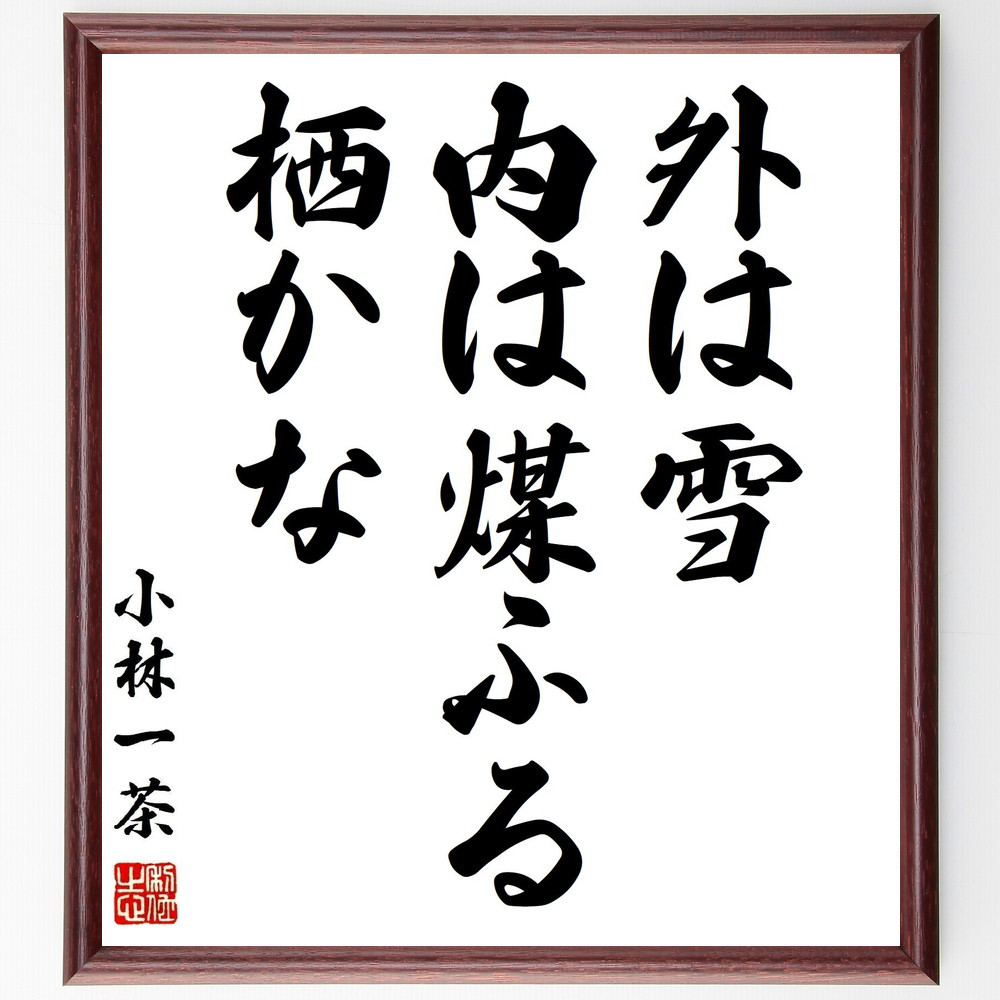 外は雪
内は煤ふる
栖かな
小林一茶